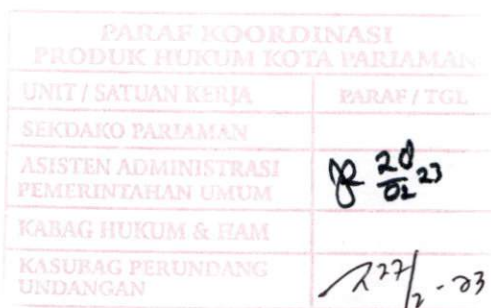 PARAF KOORDINASI
PRODUK HUKUM KOTA PARIAMAN
UNIT / SATUAN KERJA PARAF / TGL
SEKDAKO PARIAMAN
ASISTEN ADMINISTRASI
PEMERINTAHAN UMUM
20/02 23
KABAG HUKUM & HAM
KASUBAG PERUNDANG
UNDANGAN
27/2 - 23